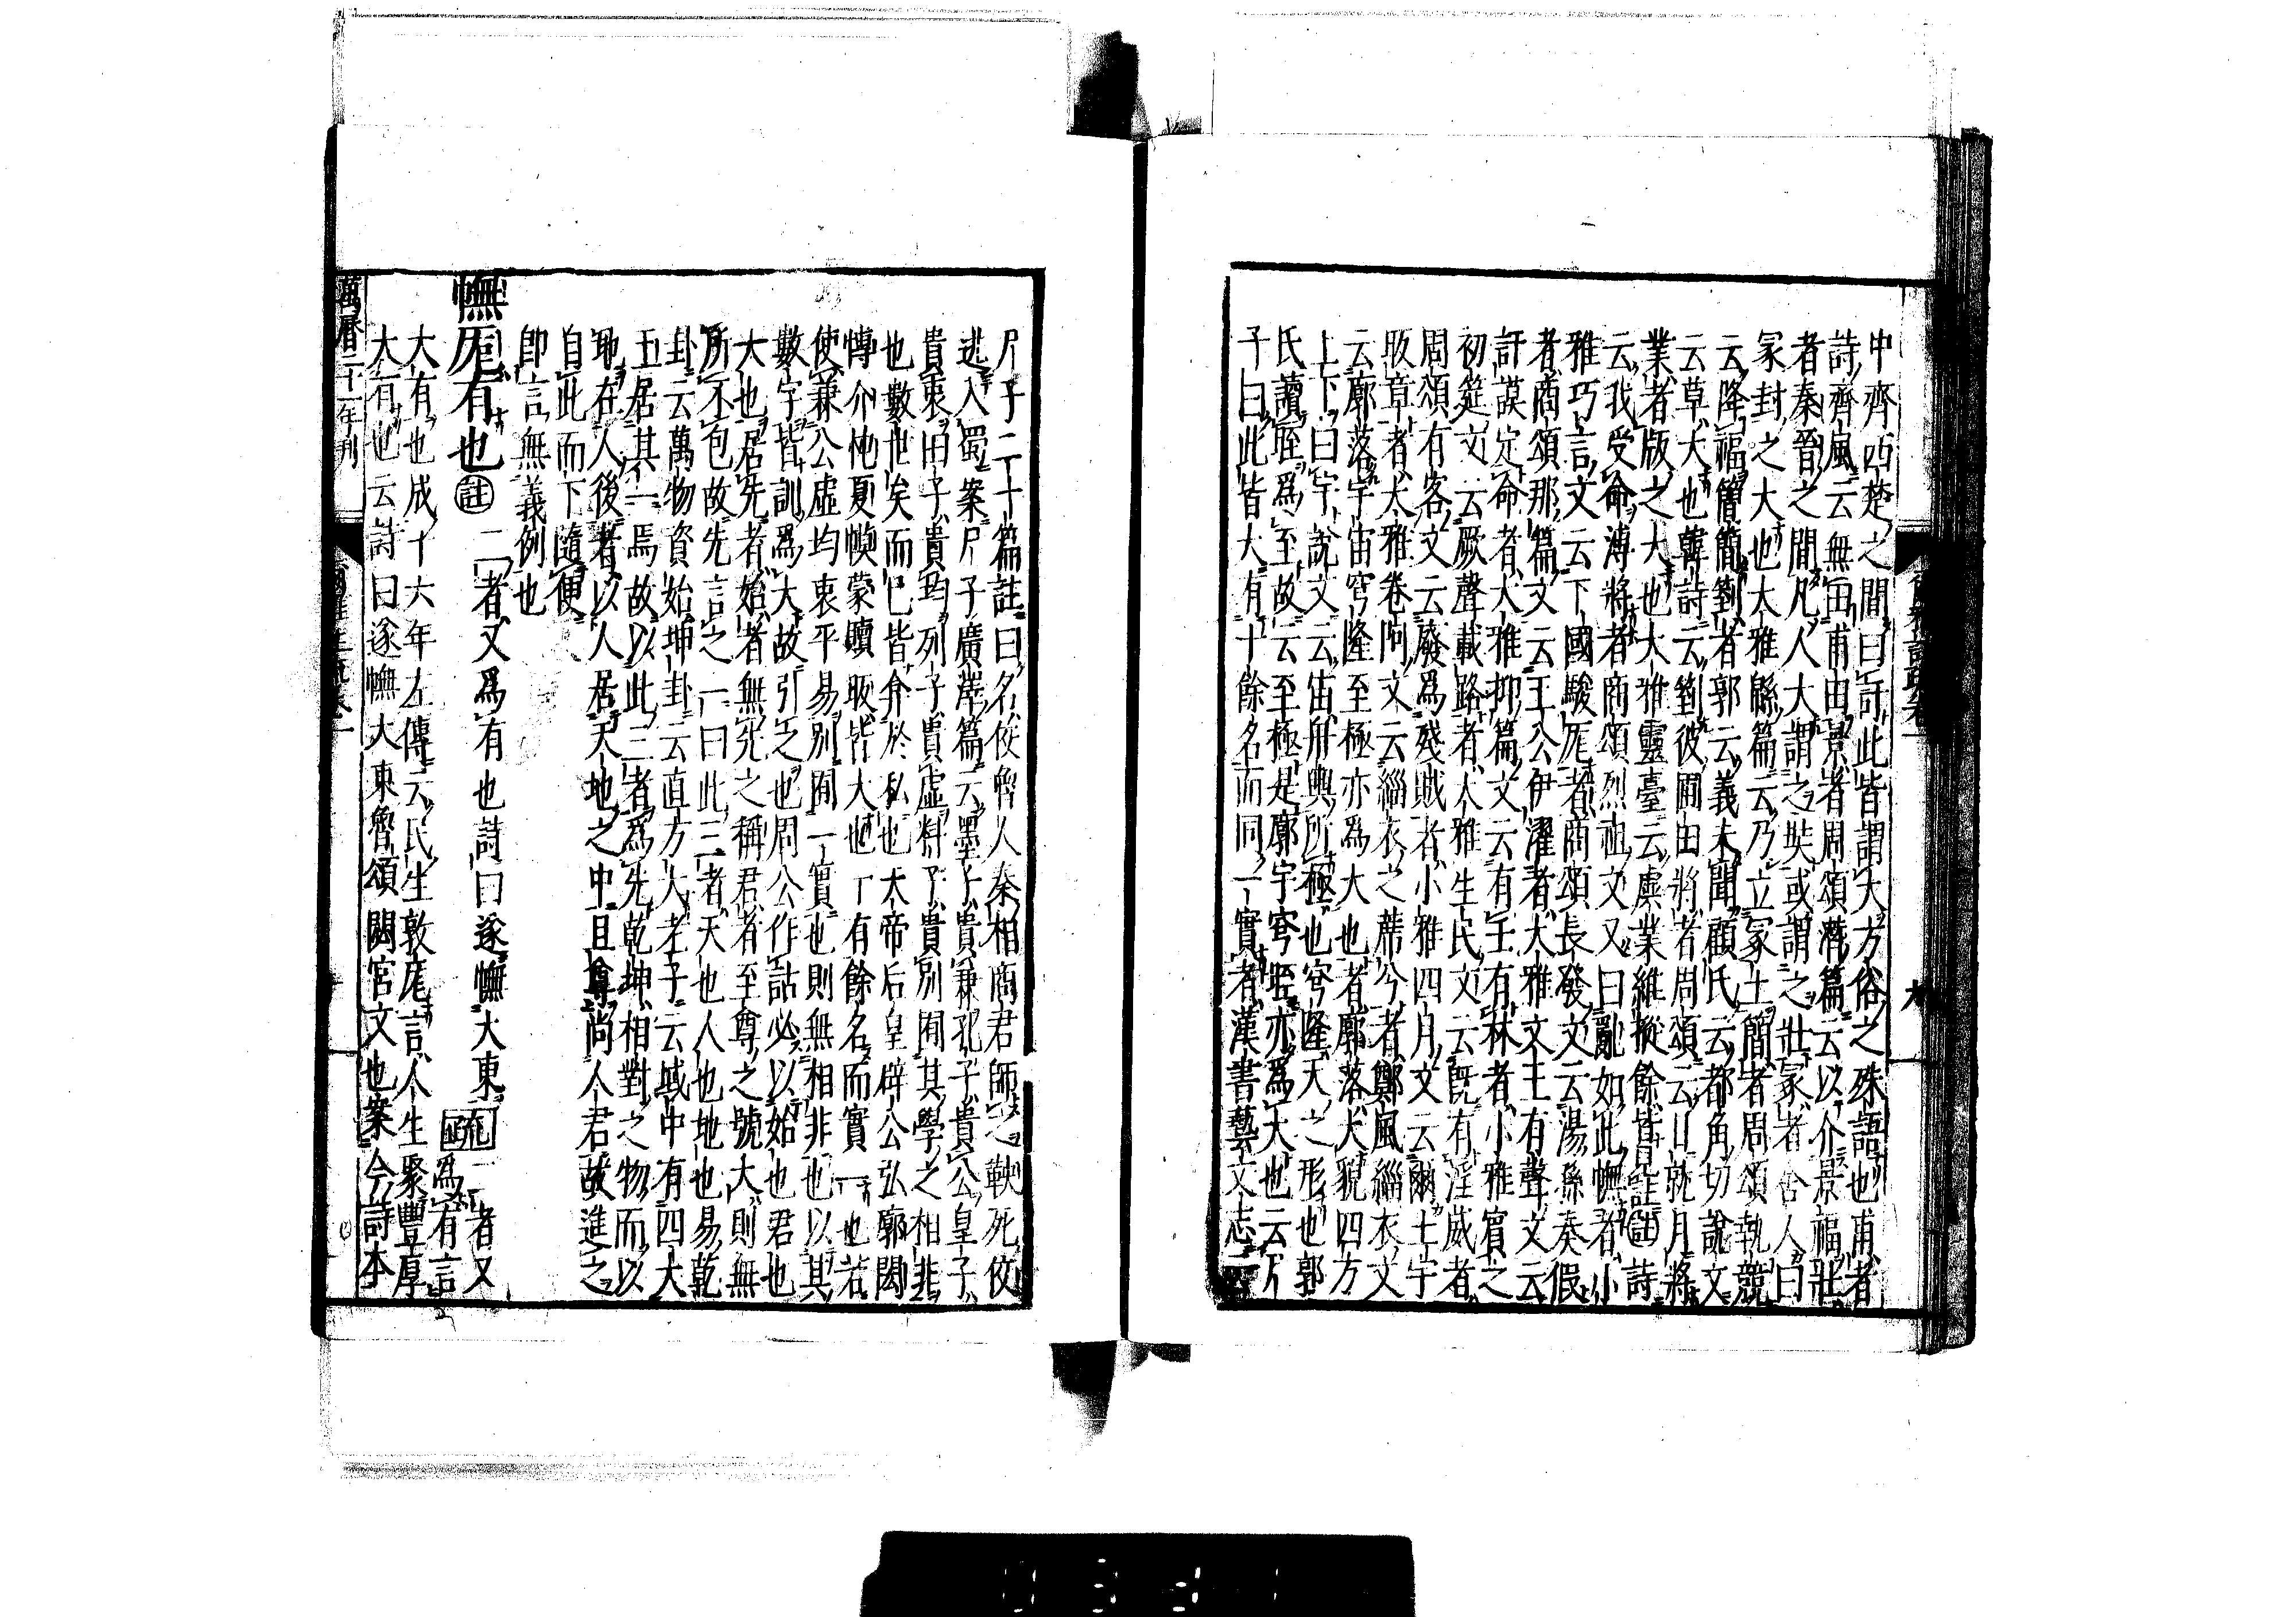 中齊西楚之間曰訏此皆謂大方俗之殊語也甫者
詩齊風云無田甫田景者周頌潛篇云以介景福壯
者秦晉之間凡人大謂之奘或謂之壯冢者舍人曰
冢封之大也大雅緜篇云乃立冢土簡者周頌執競
云降福簡簡箌者郭云義未聞顧氏云都角切說文
云草大也韓詩云箌彼圃田將者周頌云日就月將
業者版之大也大雅靈臺云虡業維樅餘皆見註㊟詩
云我受命溥將者商頌烈祖文又曰亂如此幠者小
雅巧言文云下國駿厖者商頌長發文云湯孫奏假
者商頌那篇文云王公伊濯者大雅文王有聲文云
訏謨定命者大雅抑篇文云有壬有林者小雅賓之
初筵文云厥聲載路者大雅生民文云旣有淫威者
周頌有客文云廢爲殘賊者小雅四月文云爾土宇
昄章者大雅卷阿文云緇衣之蓆兮者鄭風緇衣文
云廓落宇宙穹隆至極亦爲大也者廓落大貌四方
上下曰宇說文云宙舟輿所極也穹隆天之形也郭
氏讀晊爲至故云至極是廓宇穹晊亦爲大也云尸
子曰此皆大有十餘名而同一實者漢書藝文志
尸子二十篇註曰名佼魯人秦相商君師之鞅死佼
逃入蜀案尸子廣澤篇云墨子貴兼孔子貴公皇子
貴衷田子貴均列子貴虛料子貴別囿其學之相非
也數世矣而已皆弇於私也天帝后皇辟公弘廓閎
慱介忳夏幠蒙贖昄皆大也十有餘名而實一也若
使兼公虛均衷平易別囿一實也則無相非也以其
數字皆訓爲大故引之也周公作詁必以始也君也
大也居先者始者無先之稱君者至尊之號大則無
所不包故先言之一曰此三者天也人也地也易乾
卦云萬物資始坤卦云直方大老子云域中有四大
王居其一焉故以此三者爲先乾坤相對之物而以
地在人後者以人居天地之中且尊尚人君故進之
自此而下隨便
卽言無義例也
幠厖有也㊟二者又爲有也詩曰遂幠大東疏二者又
爲有言
大有也成十六年左傳云民生敦厖言人生聚豐厚
大有也云詩曰遂幠大東魯頌閟宮文也案今詩本
萬曆二十一年刊